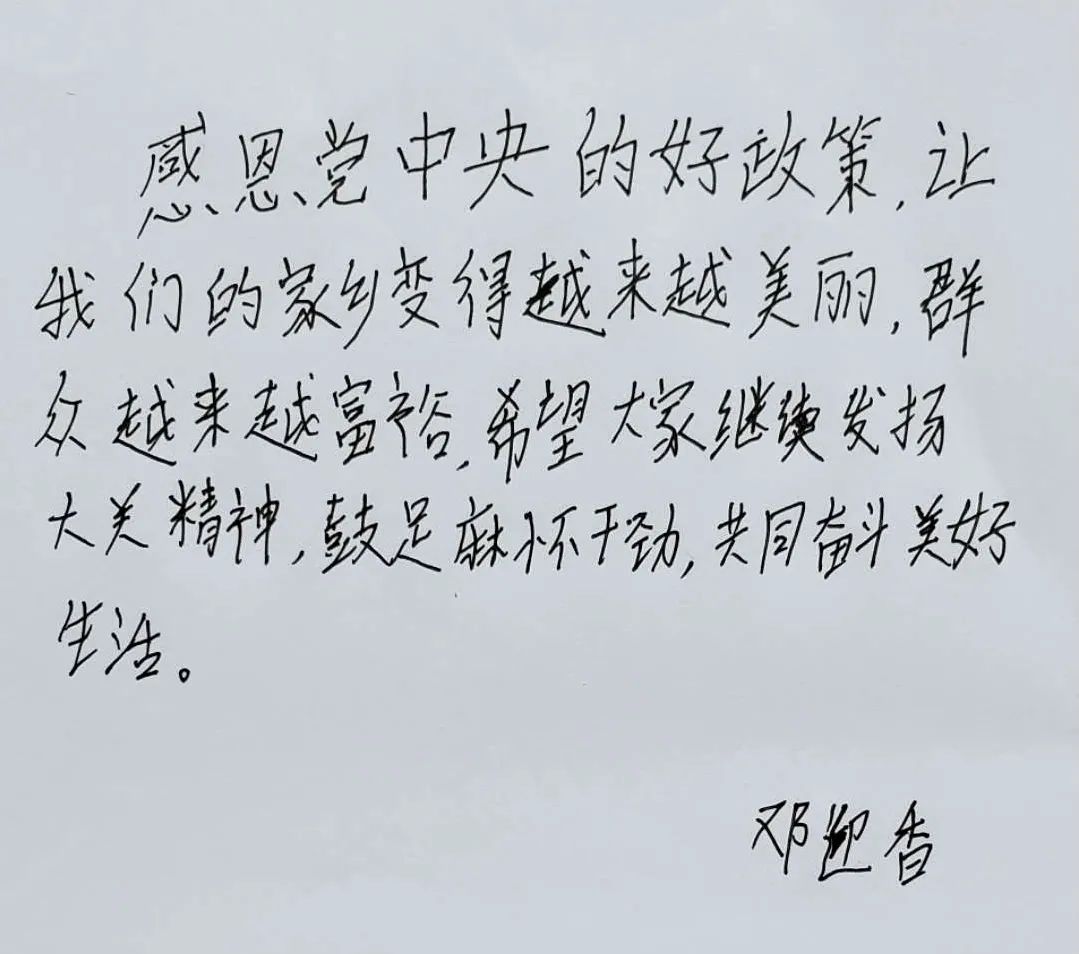 感恩党中央的好政策,让
我们的家乡变得越来越美丽,群
众越来越富裕,希望大家继续发扬
大关精神,鼓足麻怀干劲,共同奋斗美好
生活。
邓迎香